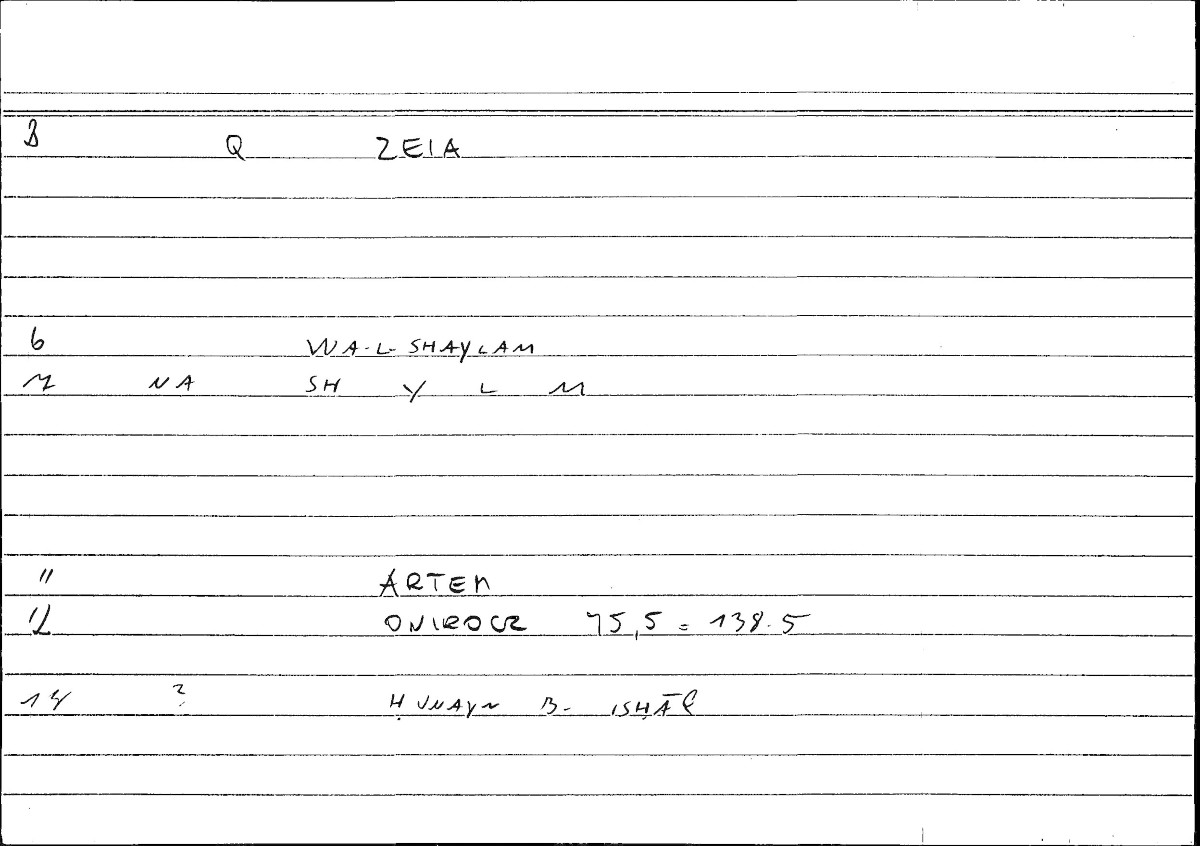 3 Q ZEIA
6 WA-L-SHAYLAM
7 NA SH Y L M
11 ARTEM
12 ONIROCR 75,5 = 138.5
14 ? ḤUNAYN B- ISḤĀQ